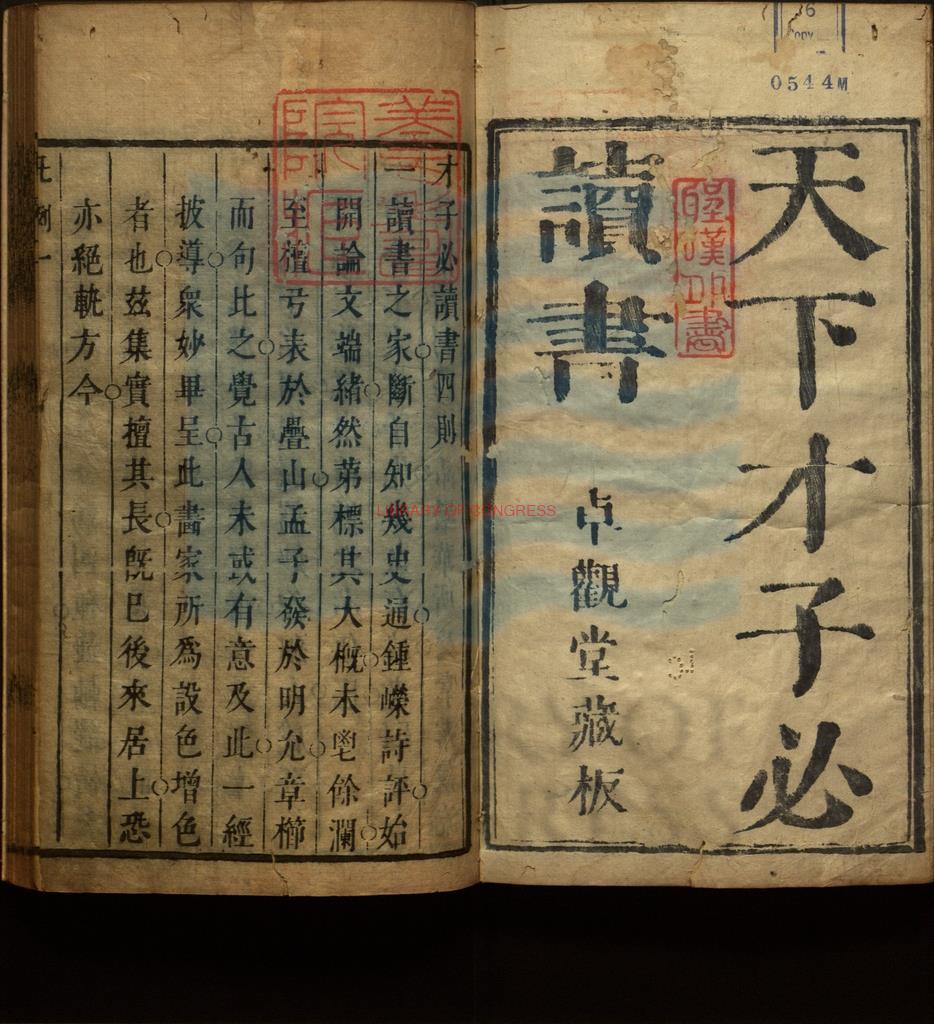 天下才子必
讀書
卓觀堂藏板
0544M
LIBRARY OF CONGRESS
才子必讀書四則
一讀書之家斷自知幾史通鍾嶸詩評始
開論文端緒然第標其大概未鬯餘瀾
至檀弓表於疊山孟子發於明允章櫛
而句比之覺古人未或有意及此一經
披導衆妙畢呈此畵家所爲設色增色
者也茲集實擅其長旣已後來居上恐
亦絕軌方今
凡例 一